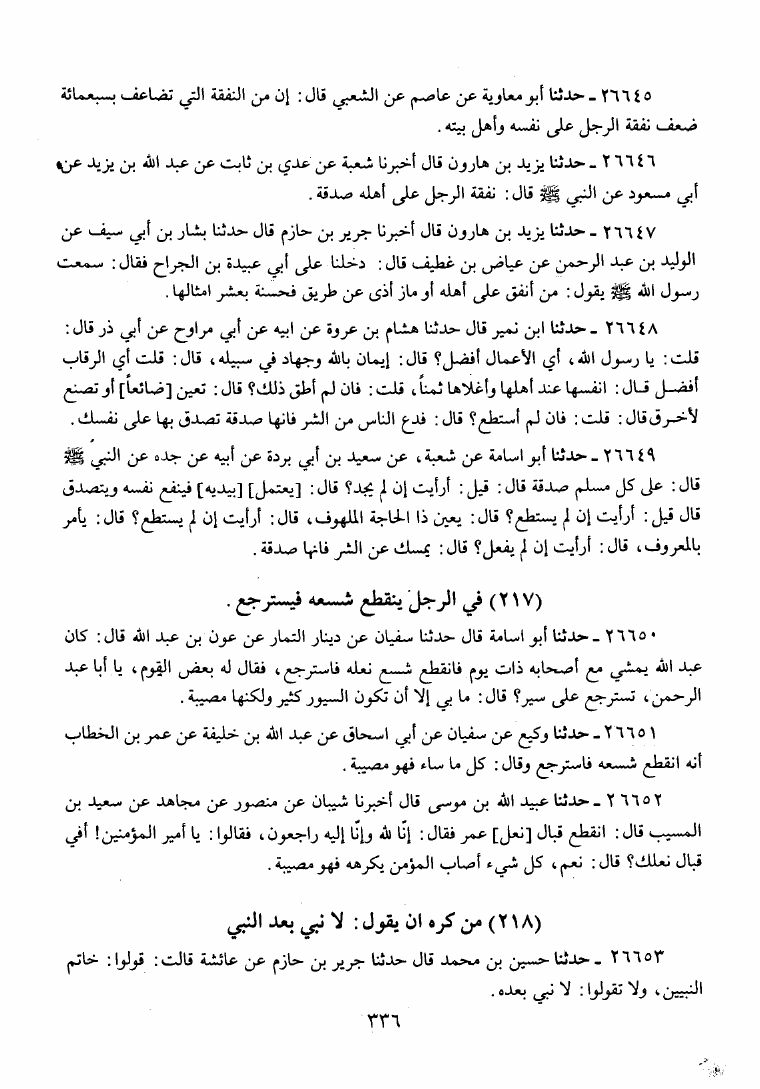 ٢٦٦٤٥ ـ حدثنا أبو معاوية عن عاصم عن الشعبي قال: إن من النفقة التي تضاعف بسبعمائة
ضعف نفقة الرجل على نفسه وأهل بيته.
٢٦٦٤٦ ـ حدثنا يزيد بن هارون قال أخبرنا شعبة عن عدي بن ثابت عن عبد الله بن يزيد عن
أبي مسعود عن النبي ﷺ قال: نفقة الرجل على أهله صدقة.
٢٦٦٤٧ ـ حدثنا يزيد بن هارون قال أخبرنا جرير بن حازم قال حدثنا بشار بن أبي سيف عن
الوليد بن عبد الرحمن عن عياض بن غطيف قال: دخلنا على أبي عبيدة بن الجراح فقال: سمعت
رسول الله ﷺ يقول: من أنفق على أهله أو ماز أذى عن طريق فحسنة بعشر امثالها.
٢٦٦٤٨ ـ حدثنا ابن نمير قال حدثنا هشام بن عروة عن ابيه عن أبي مراوح عن أبي ذر قال:
قلت: يا رسول الله، أي الأعمال أفضل؟ قال: إيمان بالله وجهاد في سبيله، قال: قلت أي الرقاب
أفضل قال: انفسها عند أهلها وأغلاها ثمناً، قلت: فان لم أطق ذلك؟ قال: تعين [ضائعاً] أو تصنع
لأخرق قال: قلت: فان لم أستطع؟ قال: فدع الناس من الشر فانها صدقة تصدق بها على نفسك.
٢٦٦٤٩ ـ حدثنا أبو اسامة عن شعبة، عن سعيد بن أبي بردة عن أبيه عن جده عن النبي ﷺ
قال: على كل مسلم صدقة قال: قيل: أرأيت إن لم يجد؟ قال: [يعتمل] [بيديه] فينفع نفسه ويتصدق
قال قيل: أرأيت إن لم يستطع؟ قال: يعين ذا الحاجة الملهوف، قال: أرأيت إن لم يستطع؟ قال: يأمر
بالمعروف، قال: أرأيت إن لم يفعل؟ قال: يمسك عن الشر فانها صدقة.
(٢١٧) في الرجل ينقطع شسعه فيسترجع.
٢٦٦٥٠ ـ حدثنا أبو اسامة قال حدثنا سفيان عن دينار التمار عن عون بن عبد الله قال: كان
عبد الله يمشي مع أصحابه ذات يوم فانقطع شسع نعله فاسترجع، فقال له بعض القوم، يا أبا عبد
الرحمن، تسترجع على سير؟ قال: ما بي إلا أن تكون السيور كثير ولكنها مصيبة.
٢٦٦٥١ ـ حدثنا وكيع عن سفيان عن أبي اسحاق عن عبد الله بن خليفة عن عمر بن الخطاب
أنه انقطع شسعه فاسترجع وقال: كل ما ساء فهو مصيبة.
٢٦٦٥٢ ـ حدثنا عبيد الله بن موسى قال أخبرنا شيبان عن منصور عن مجاهد عن سعيد بن
المسيب قال: انقطع قبال [نعل] عمر فقال: إنّا لله وإنّا إليه راجعون، فقالوا: يا أمير المؤمنين! أفي
قبال نعلك؟ قال: نعم، كل شيء أصاب المؤمن يكرهه فهو مصيبة.
(٢١٨) من كره ان يقول: لا نبي بعد النبي
٢٦٦٥٣ ـ حدثنا حسين بن محمد قال حدثنا جرير بن حازم عن عائشة قالت: قولوا: خاتم
النبيين، ولا تقولوا: لا نبي بعده.
٣٣٦